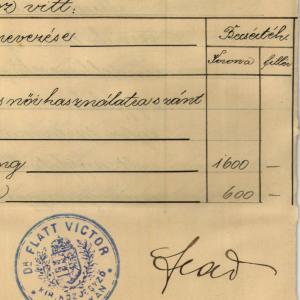 oz vitt:
nevezése Becsérték
Korona fillér
s női használatra szánt
ng 1600 —
) 600 —
DR FLATT VICTOR
KIR. KÖZJEGYZŐ